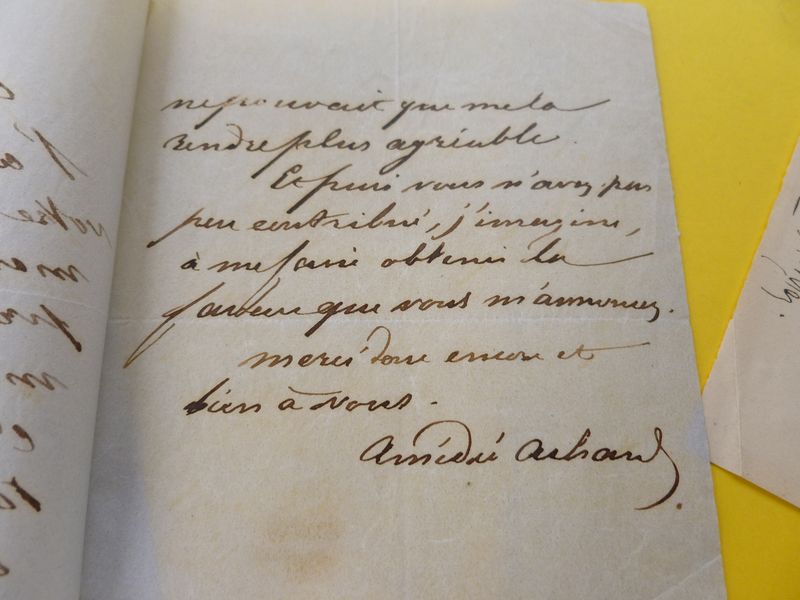 l'a
votre
ne pouvait que me la
rendre plus agréable.
Et puis vous n'avez pas
peu contribué, j'imagine,
à me faire obtenir la
faveur que vous m'annoncez.
Merci donc encore et
bien à vous.
Amédée Achard